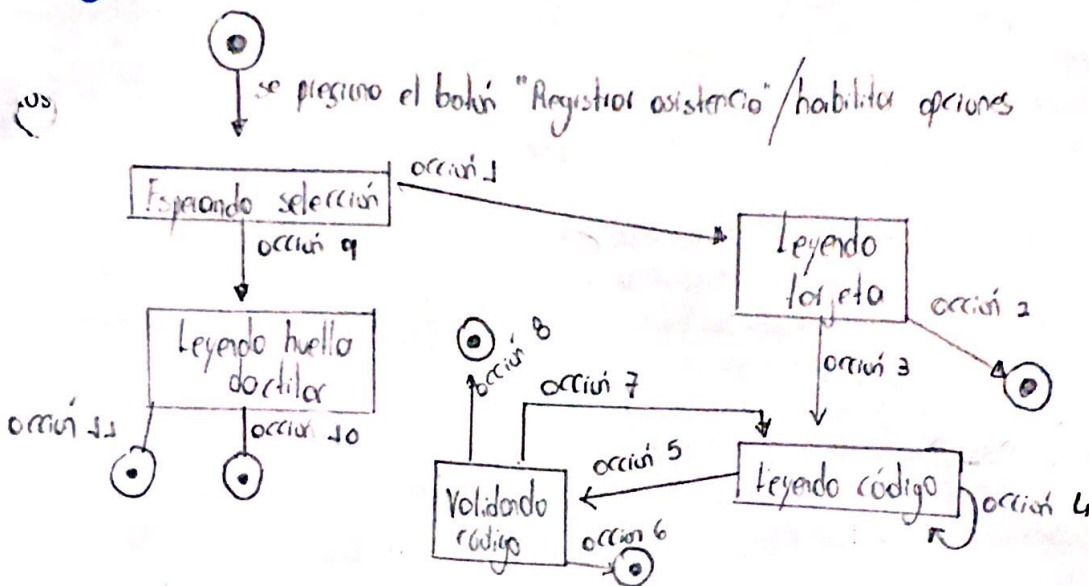 se presiono el botón "Registrar asistencia" / habilitar opciones
acción 1
Esperando selección
acción 9
Leyendo tarjeta
acción 2
acción 3
Leyendo huella dactilar
acción 8
acción 7
acción 11
acción 10
acción 5
Leyendo código
acción 4
Validando código
acción 6